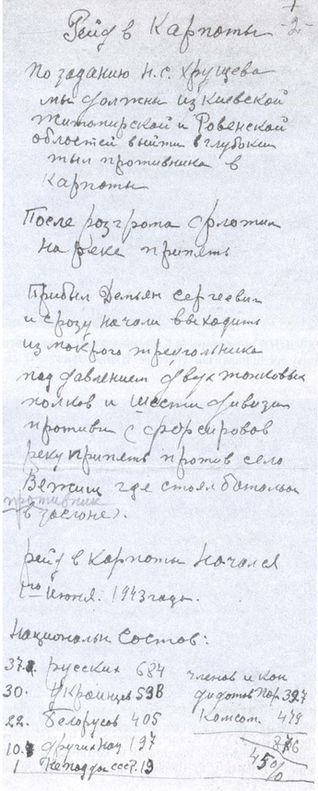 Рейд в Карпаты -2-
По заданию Н.С. Хрущева
мы должны из Киевской
Житомирской и Ровенской
областей выйти в глубокий
тыл противника в
Карпаты
После розгрома флотии
на реке Припять
Прибыл Демьян Сергеевич
и срозу начали выходить
из мокрого треугольника
под давлением двух танковых
полков и шести дивизии
противн с форсировов
реку припять против село
Вяжищ где стоял батольон
противник
в заслоне).
рейд в Карпаты начался
го Июня. 1943 года.
Национальн состов:
37. русских 684 членов и кан
30. Украинцев 598 дидотов пар. 397
22. Белорусов 405 Комсом. 479
10. других нац 197 876
1 не поддан СССР. 19 45%